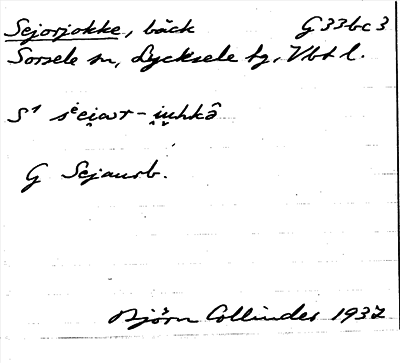 Sejorjokke, bäck G33bc3
Sorsele sn, Lycksele tg, Vbt l.
S1
G Sejaurb.
Björn Collinder 1937